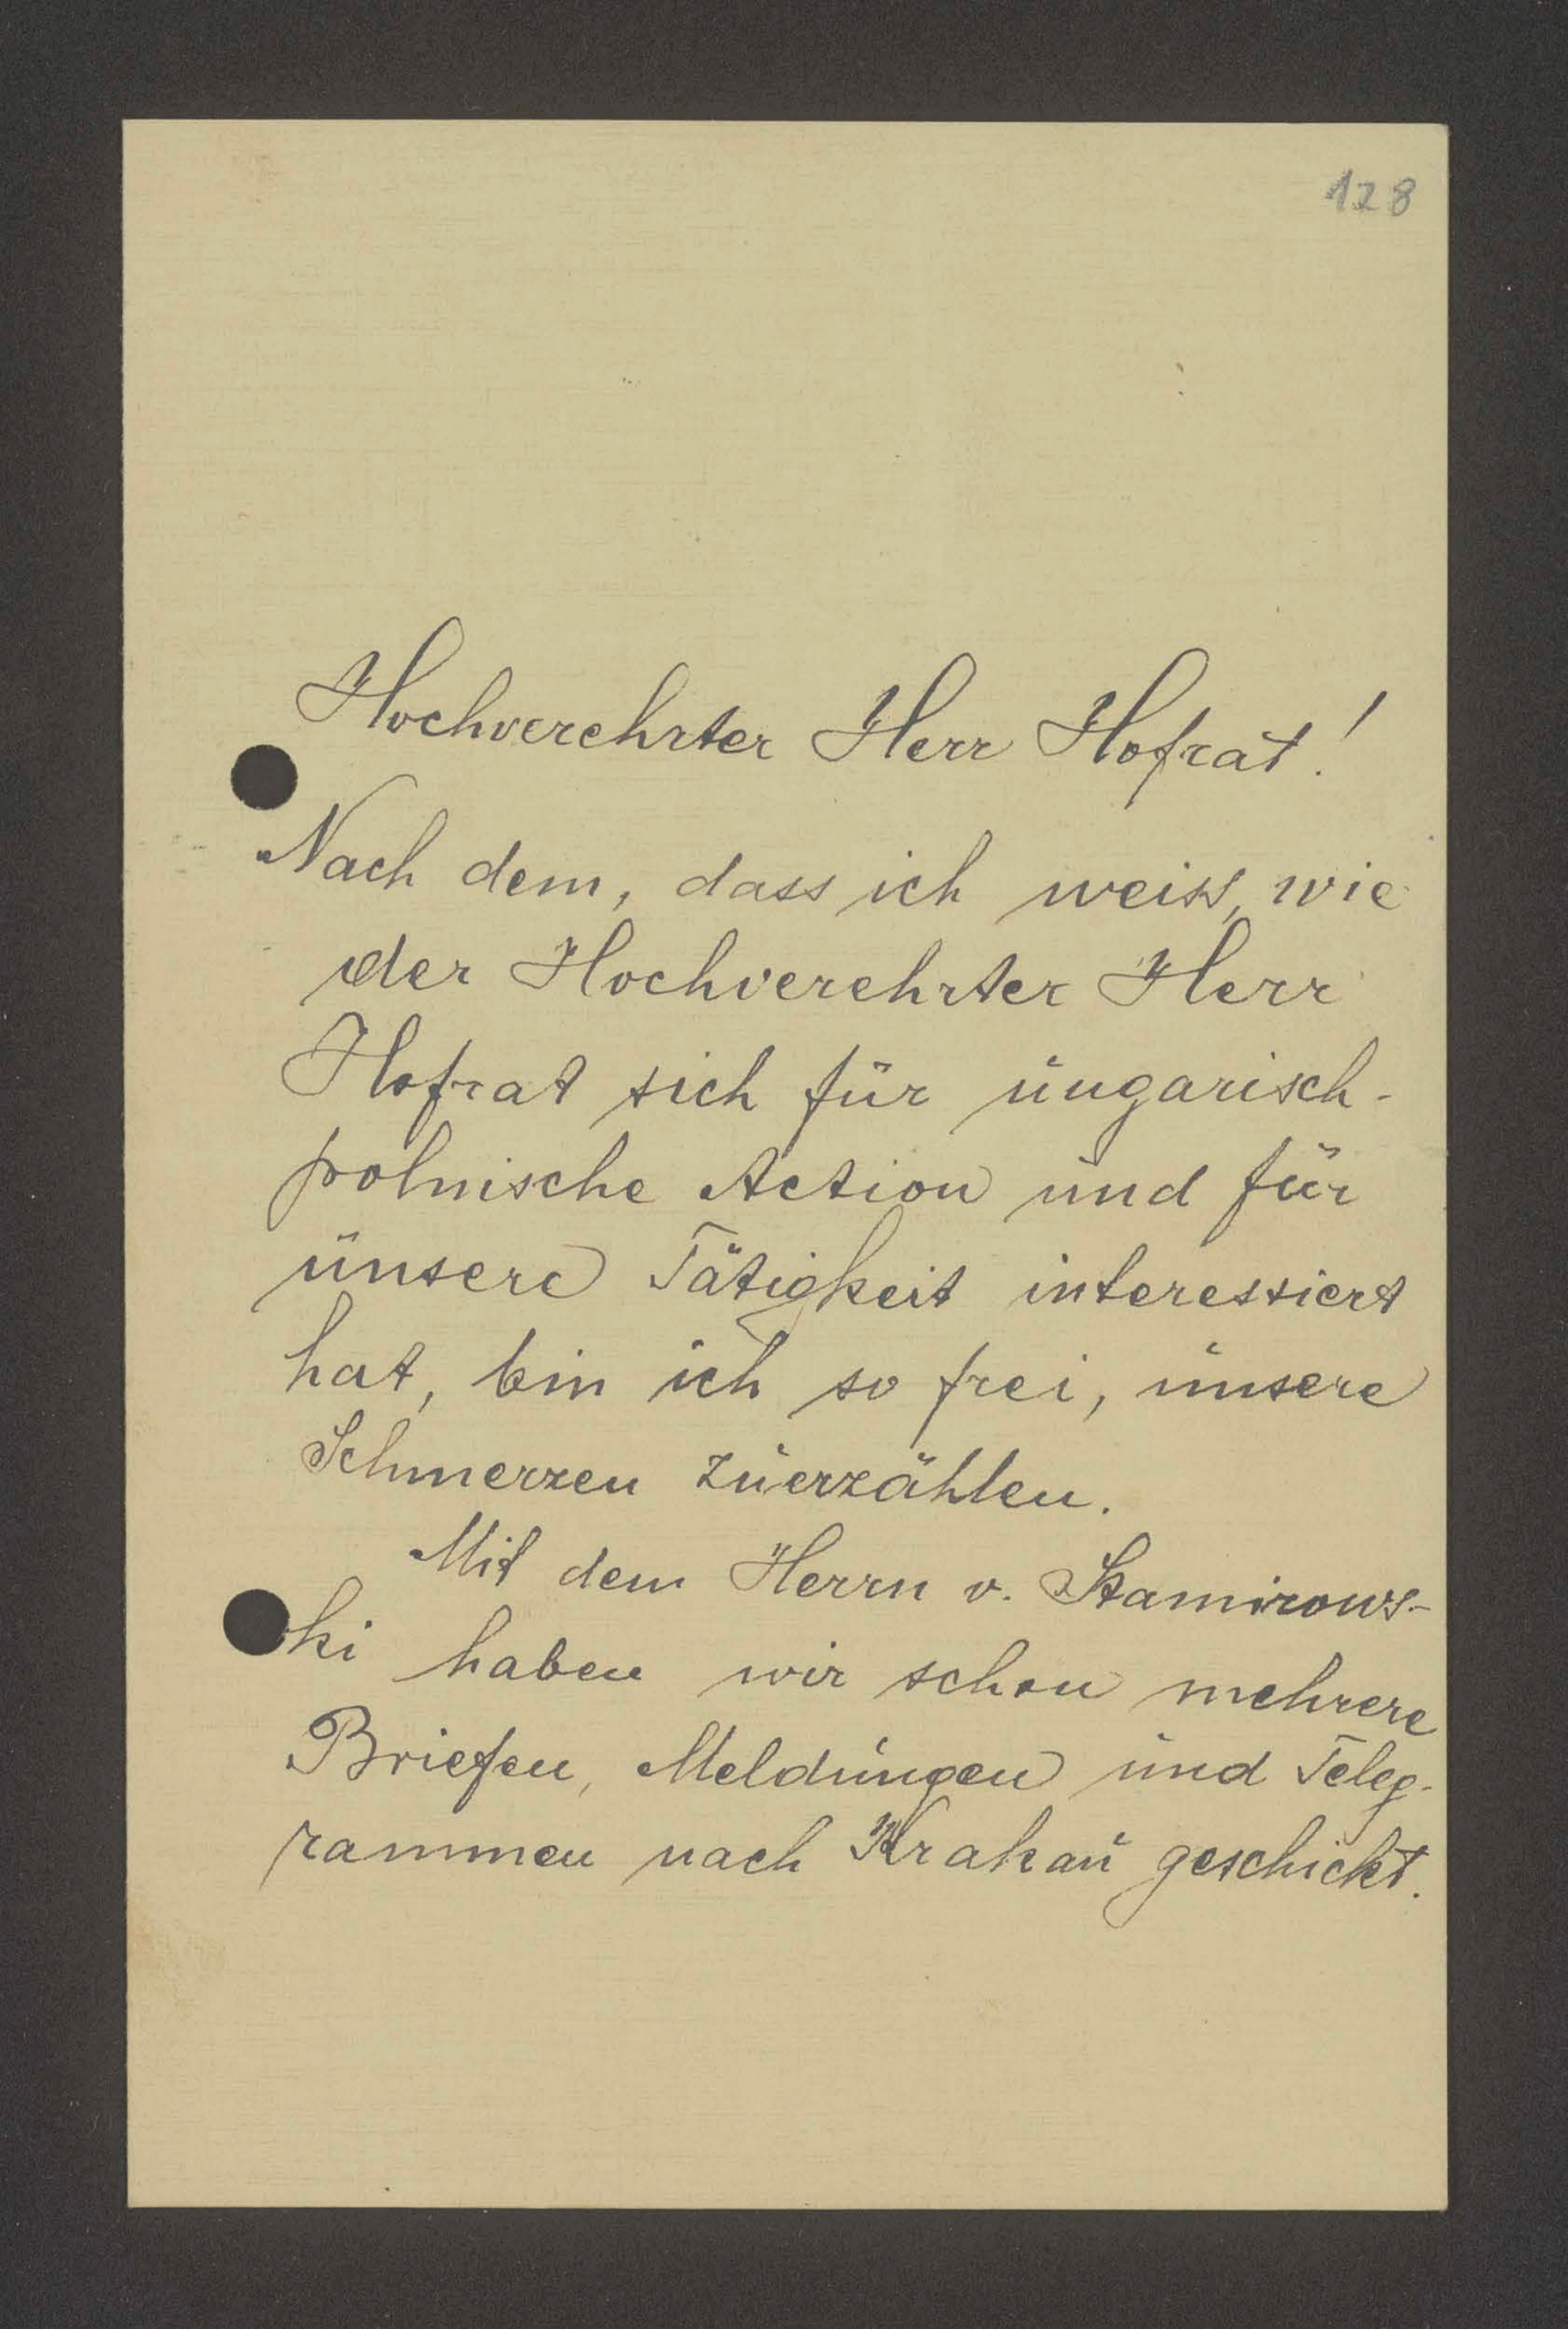 128
Hochverehrter Herr Hofrat!
Nach dem, dass ich weiss, wie
der Hochverehrter Herr
Hofrat sich für ungarisch-
polnische Action und für
unsere Tätigkeit interessiert
hat, bin ich so frei, unsere
Schmerzen zuerzählen.
Mit dem Herrn v. Stamirows-
ki haben wir schon mehrere
Briefen, Meldungen und Teleg-
rammen nach Krakau geschickt.